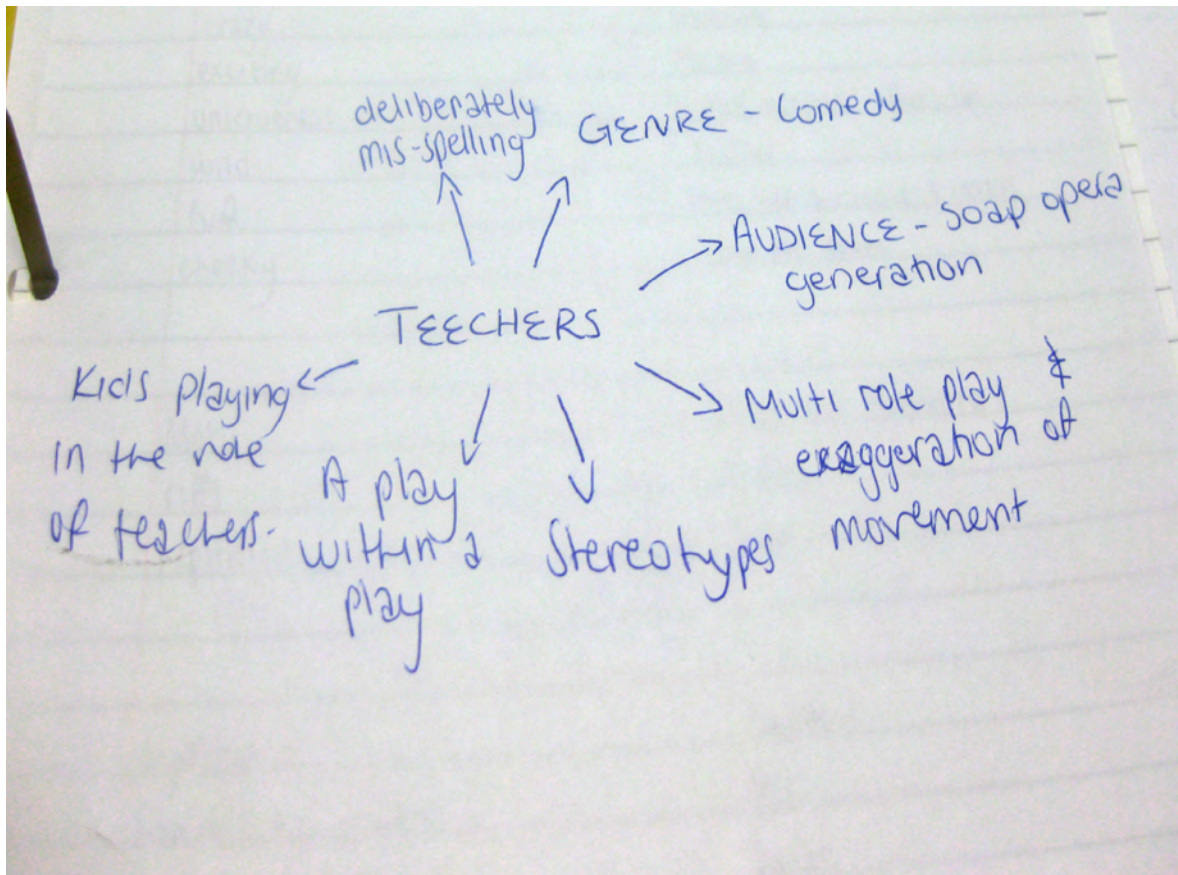 deliberately
mis-spelling
GENRE - Comedy
AUDIENCE - Soap opera
generation
TEECHERS
Kids playing
in the role
of teachers.
A play
within a
play
Stereotypes
Multi role play &
exaggeration of
movement